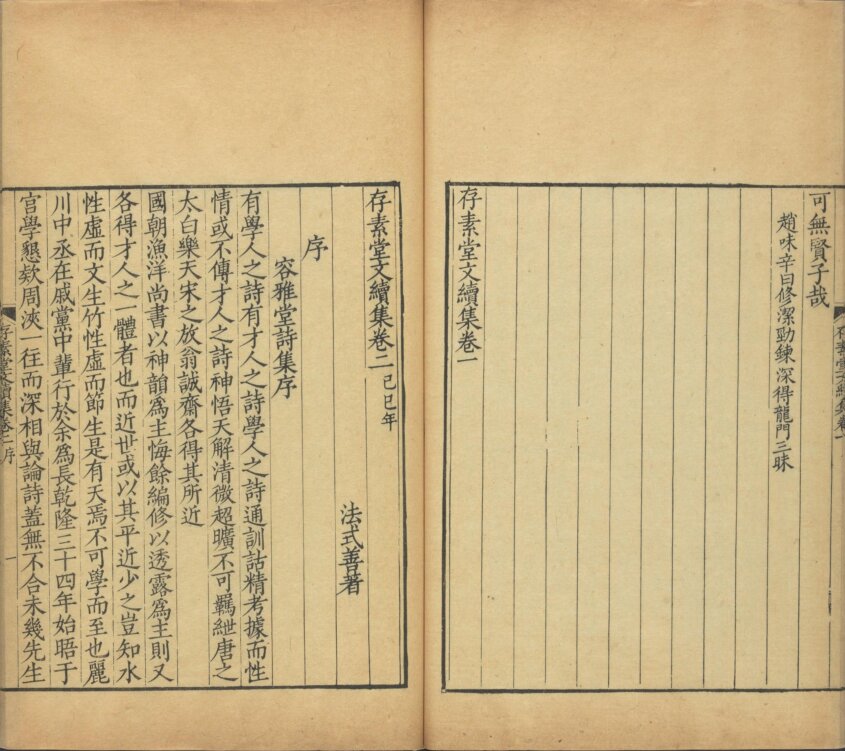 可無賢子哉
趙味辛曰修潔勁鍊深得龍門三昧
存素堂文續集卷一
存素堂文續集卷二 己巳年
法式善著
序
容雅堂詩集序
有學人之詩有才人之詩學人之詩通訓詁精考據而性
情或不傳才人之詩神悟天解清微超曠不可羈紲唐之
太白樂天宋之放翁誠齋各得其所近
國朝漁洋尚書以神韻爲主悔餘編修以透露爲主則又
各得才人之一體者也而近世或以其平近少之豈知水
性虛而文生竹性虛而節生是有天焉不可學而至也麗
川中丞在戚黨中輩行於余爲長乾隆三十四年始晤于
官學懇欵周浹一往而深相與論詩蓋無不合未幾先生